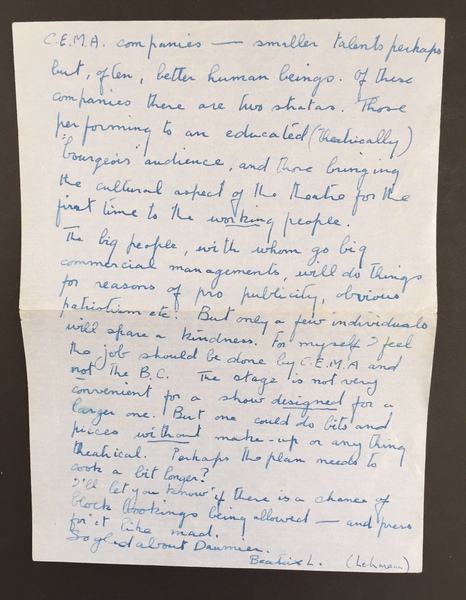 C.E.M.A. companies — smaller talents perhaps
but, often, better human beings. Of these
companies there are two stratas. Those
performing to an educated (theatrically)
'bourgeois' audience, and those bringing
the cultural aspect of the theatre for the
first time to the working people.
The big people, with whom go big
commercial managements, will do things
for reasons of pro publicity, obvious
patriotism etc. But only a few individuals
will spare a kindness. For myself I feel
the job should be done by C.E.M.A and
not the B.C. The stage is not very
convenient for a show designed for a
larger one. But one could do bits and
pieces without make-up or any thing
theatrical. Perhaps the plan needs to
cook a bit longer?
I'll let you know if there is a chance of
block bookings being allowed — and press
for it like mad.
So glad about Daumier.
Beatrix L. (Lehmann)